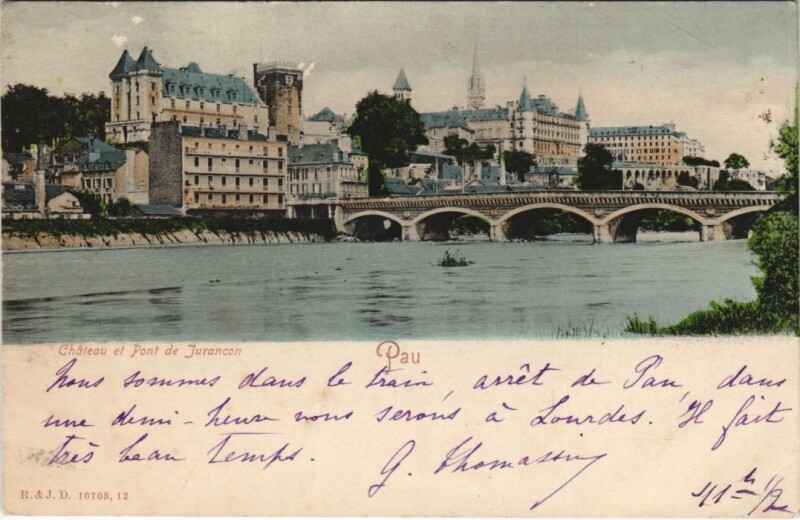 Château et Pont de Jurancon
Pau
Nous sommes dans le train, arrêt de Pau, dans
une demi-heure nous serons à Lourdes. Il fait
très beau temps. G. Thomassin
11h 1/2
R. & J. D. 10703, 12